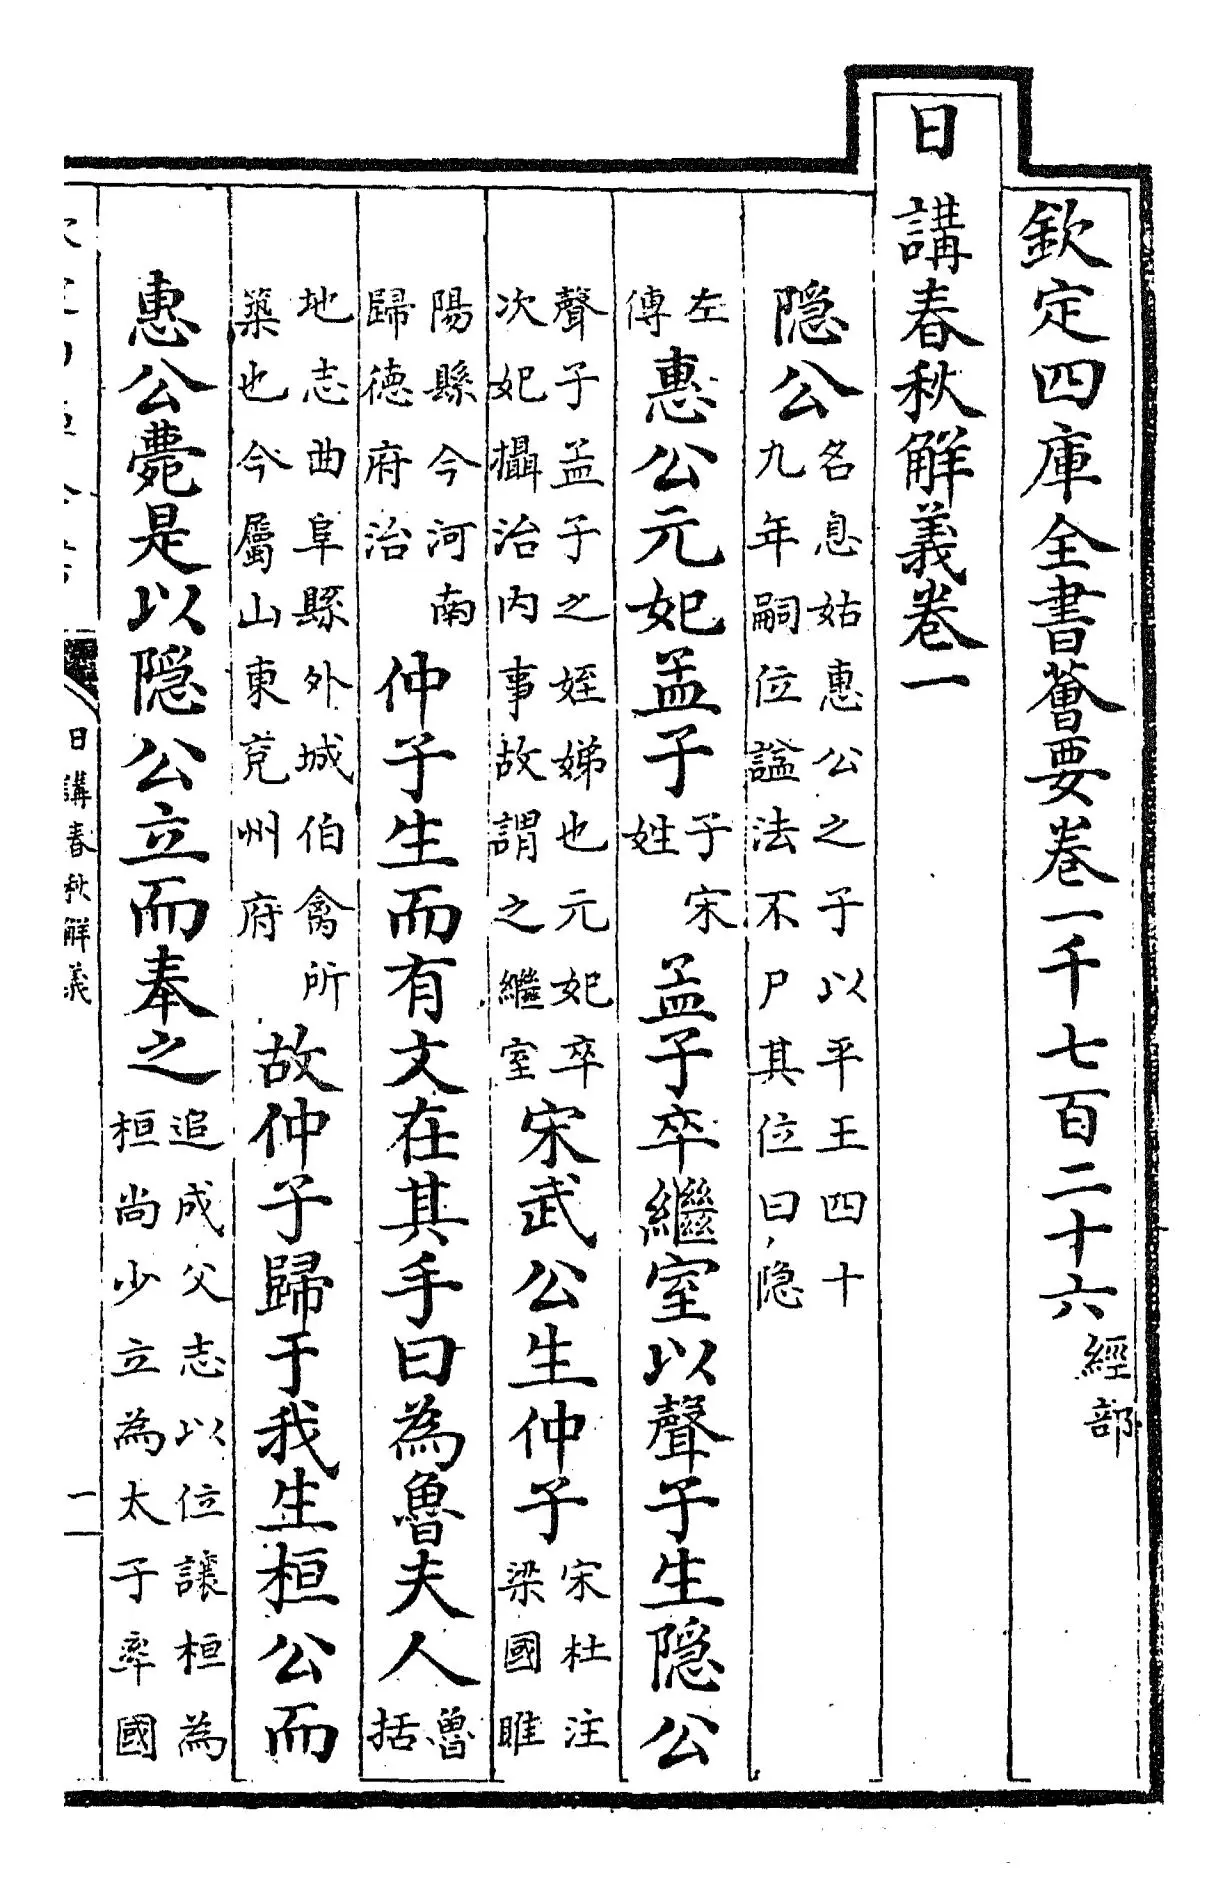 欽定四庫全書薈要卷一千七百二十六經部
日講春秋解義卷一
隱公名息姑惠公之子以平王四十九年嗣位諡法不尸其位曰隱
左傳惠公元妃孟子子宋姓孟子卒繼室以聲子生隱公
聲子孟子之姪娣也元妃卒次妃攝治内事故謂之繼室宋武公生仲子宋杜注梁國睢
陽縣今河南歸德府治仲子生而有文在其手曰為魯夫人魯括
地志曲阜縣外城伯禽所築也今屬山東兖州府故仲子歸于我生桓公而
惠公薨是以隱公立而奉之追成父志以位讓桓為桓尚少立為太子率國
日講春秋解義
一